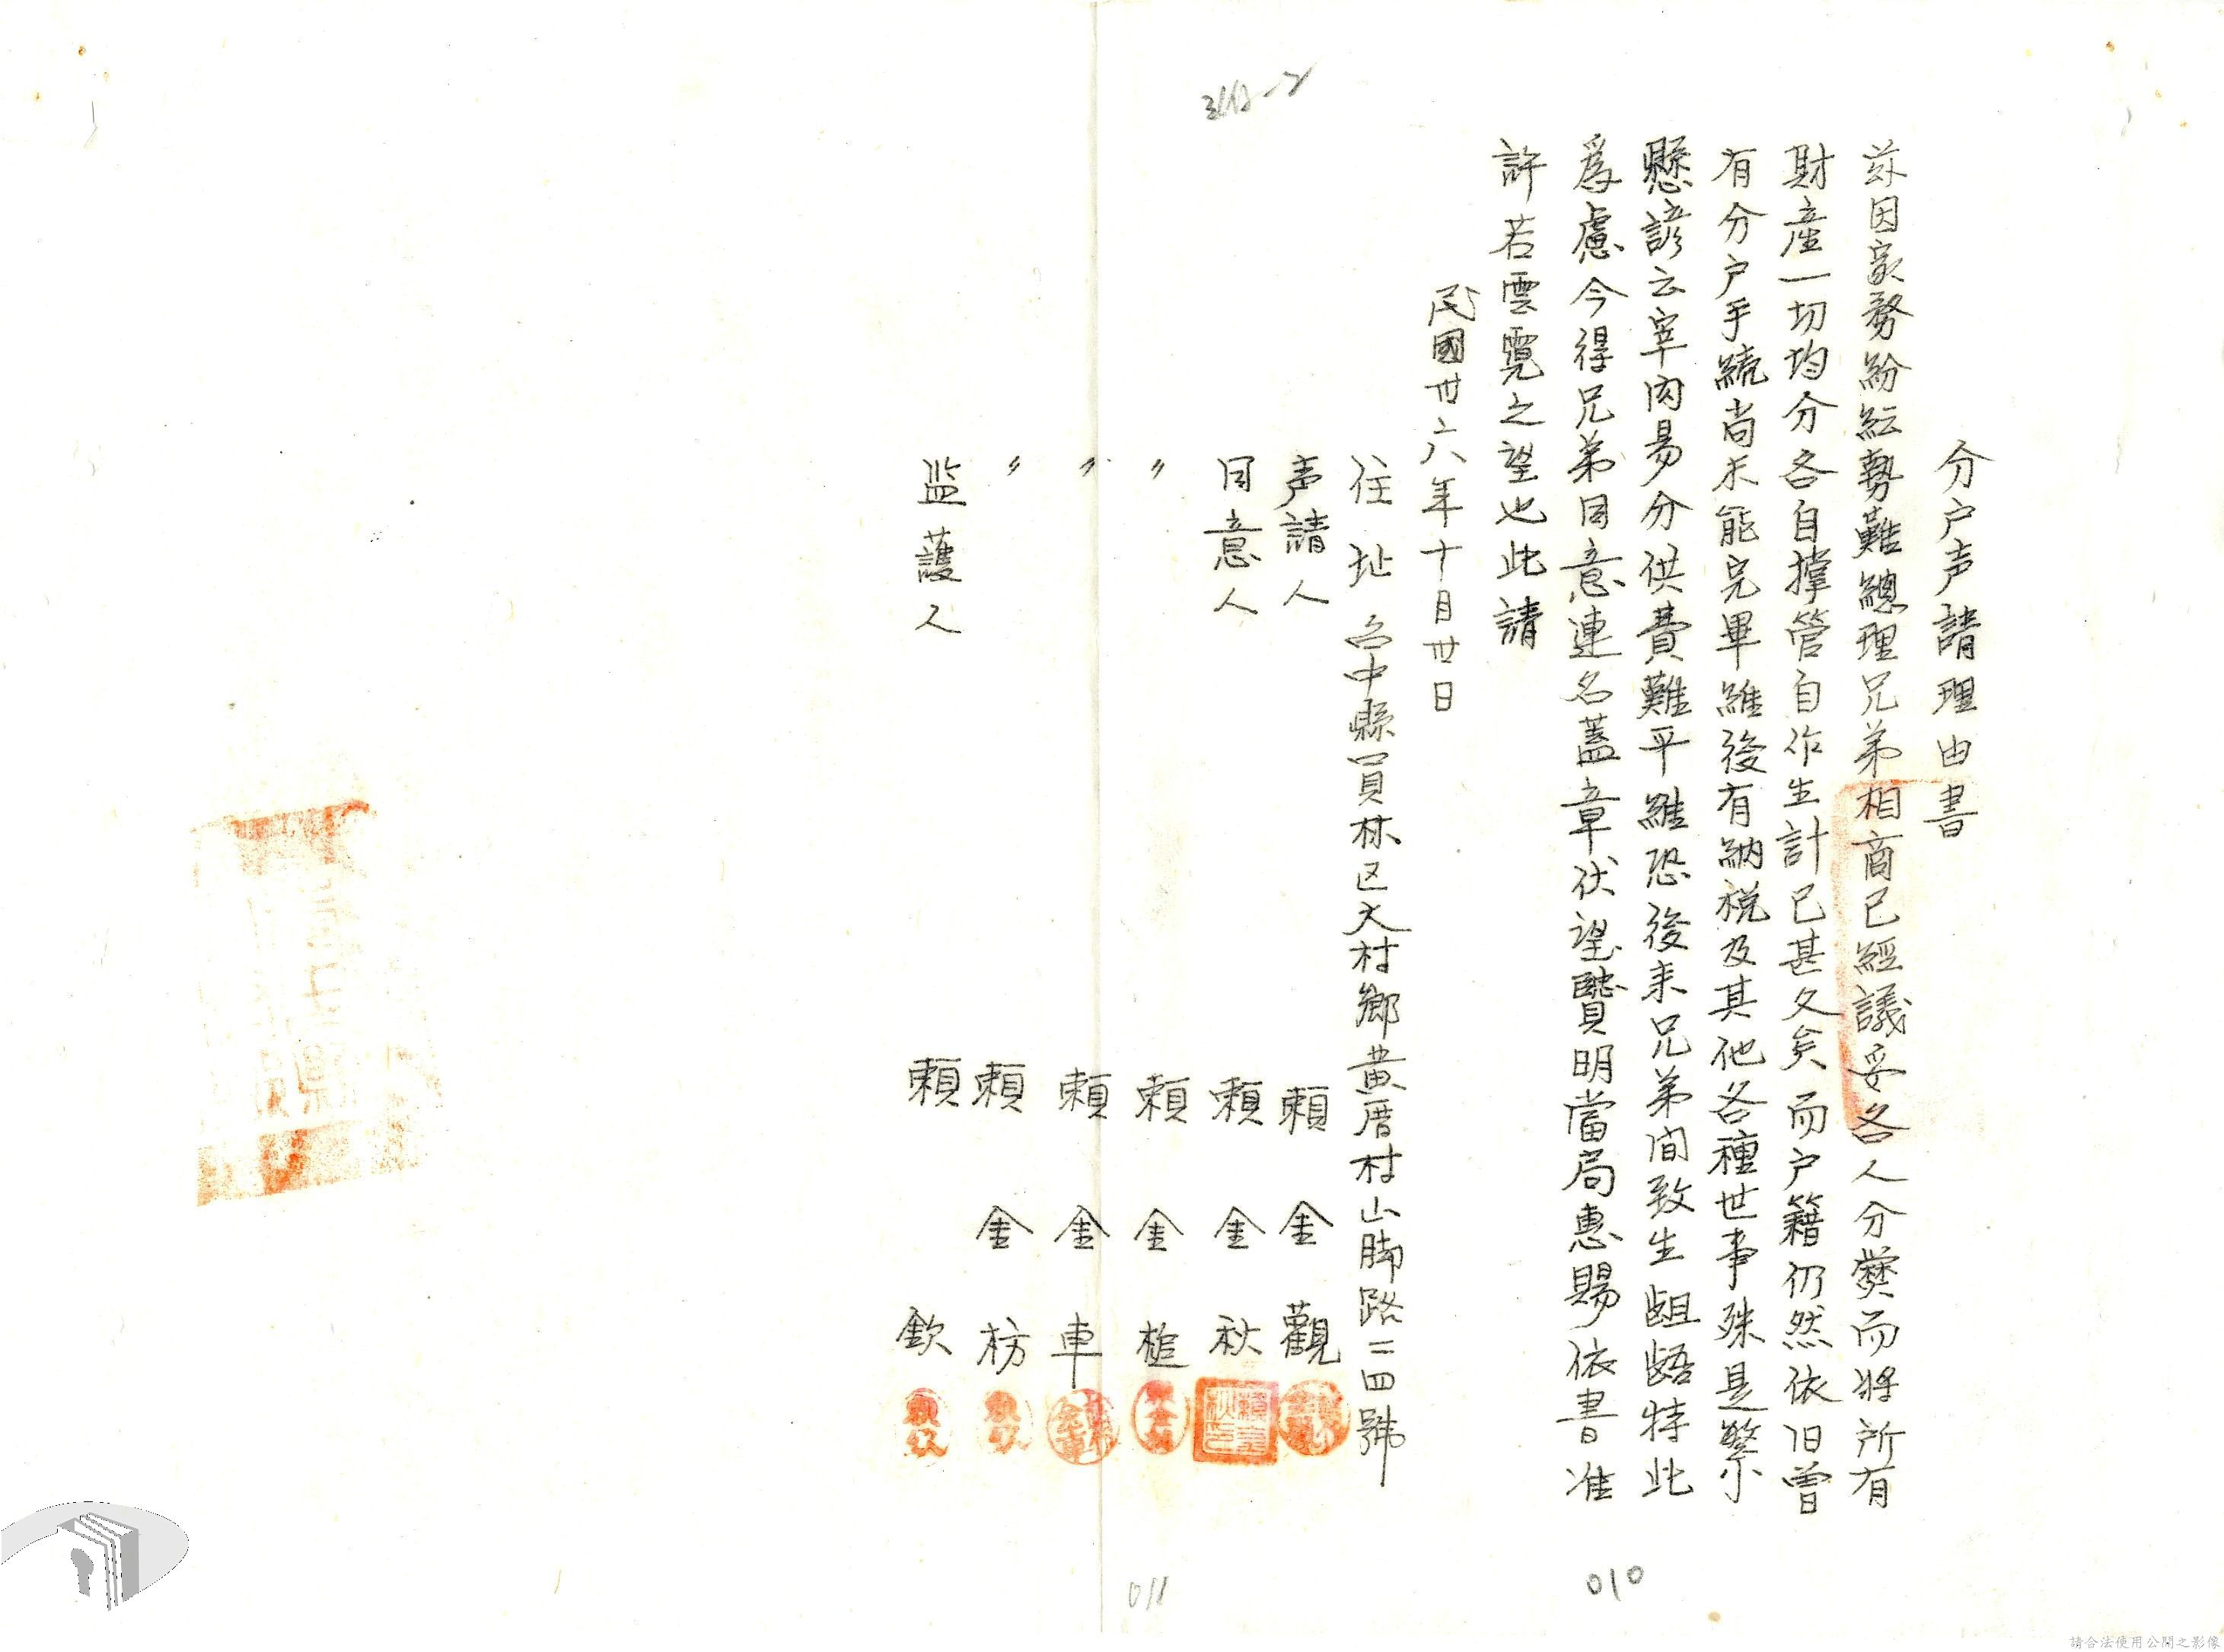 分户声請理由書
茲因家務紛紜勢難總理兄弟相商已經議妥各人分爨而將所有
財産一切均分各自撑管自作生計已甚久矣而户籍仍然依旧曾
有分户手続尚未能完畢雖後有納税及其他各種世事殊是繁
懸諺云宰肉易分供費難平雖恐後来兄弟间致生龃龉特此
爲慮今得兄弟同意連名蓋章伏望賢明當局惠賜依書准
許若雲霓之望也此請
民國卅六年十月卅日
住址 台中縣員林区大村鄉黄厝村山脚路二四號
声請人 賴金觀
同意人 賴金秋
〃 賴金槌
〃 賴金車
〃 賴金枋
监護人 賴欽
010
011
請合法使用公開之影像